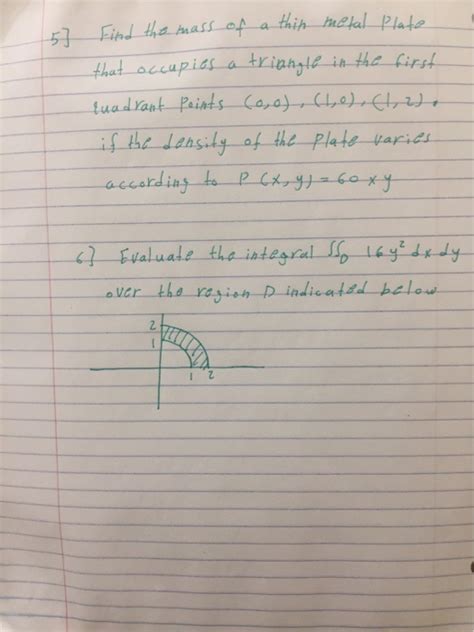 5] Find the mass of a thin metal Plate
that occupies a triangle in the first
quadrant Points (0,0), (1,0), (1,2).
if the density of the Plate varies
according to P(x,y) = 60xy
6] Evaluate the integral ∫∫_D 16y² dx dy
over the region D indicated below
2
1
1 2